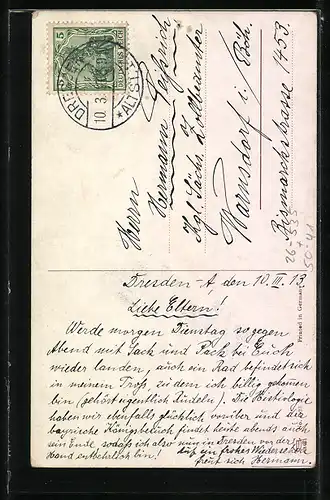 5
DRESDEN
10.3.
*ALTST.
Herrn
Hermann
Kgl. Sächs. Zollbeamter
Warnsdorf i/ Böh.
Bismarckstrasse 1453.
26-535
50-41
Printed in Germany
Dresden-A den 10. III. 13.
Liebe Eltern!
Werde morgen Dienstag so gegen
Abend mit Sack und Pack bei Euch
wieder landen, auch ein Rad befindet sich
in meinem Troß, zu dem ich billig gekommen
bin (gehört eigentlich Rudeln). Die
haben wir ebenfalls glücklich vorüber und der
bayrische Königsbesuch findet heute abends auch
sein Ende, sodaß ich also nun in Dresden von der
Hand entbehrlich bin! Auf ein frohes Wiedersehen
freut sich Hermann.